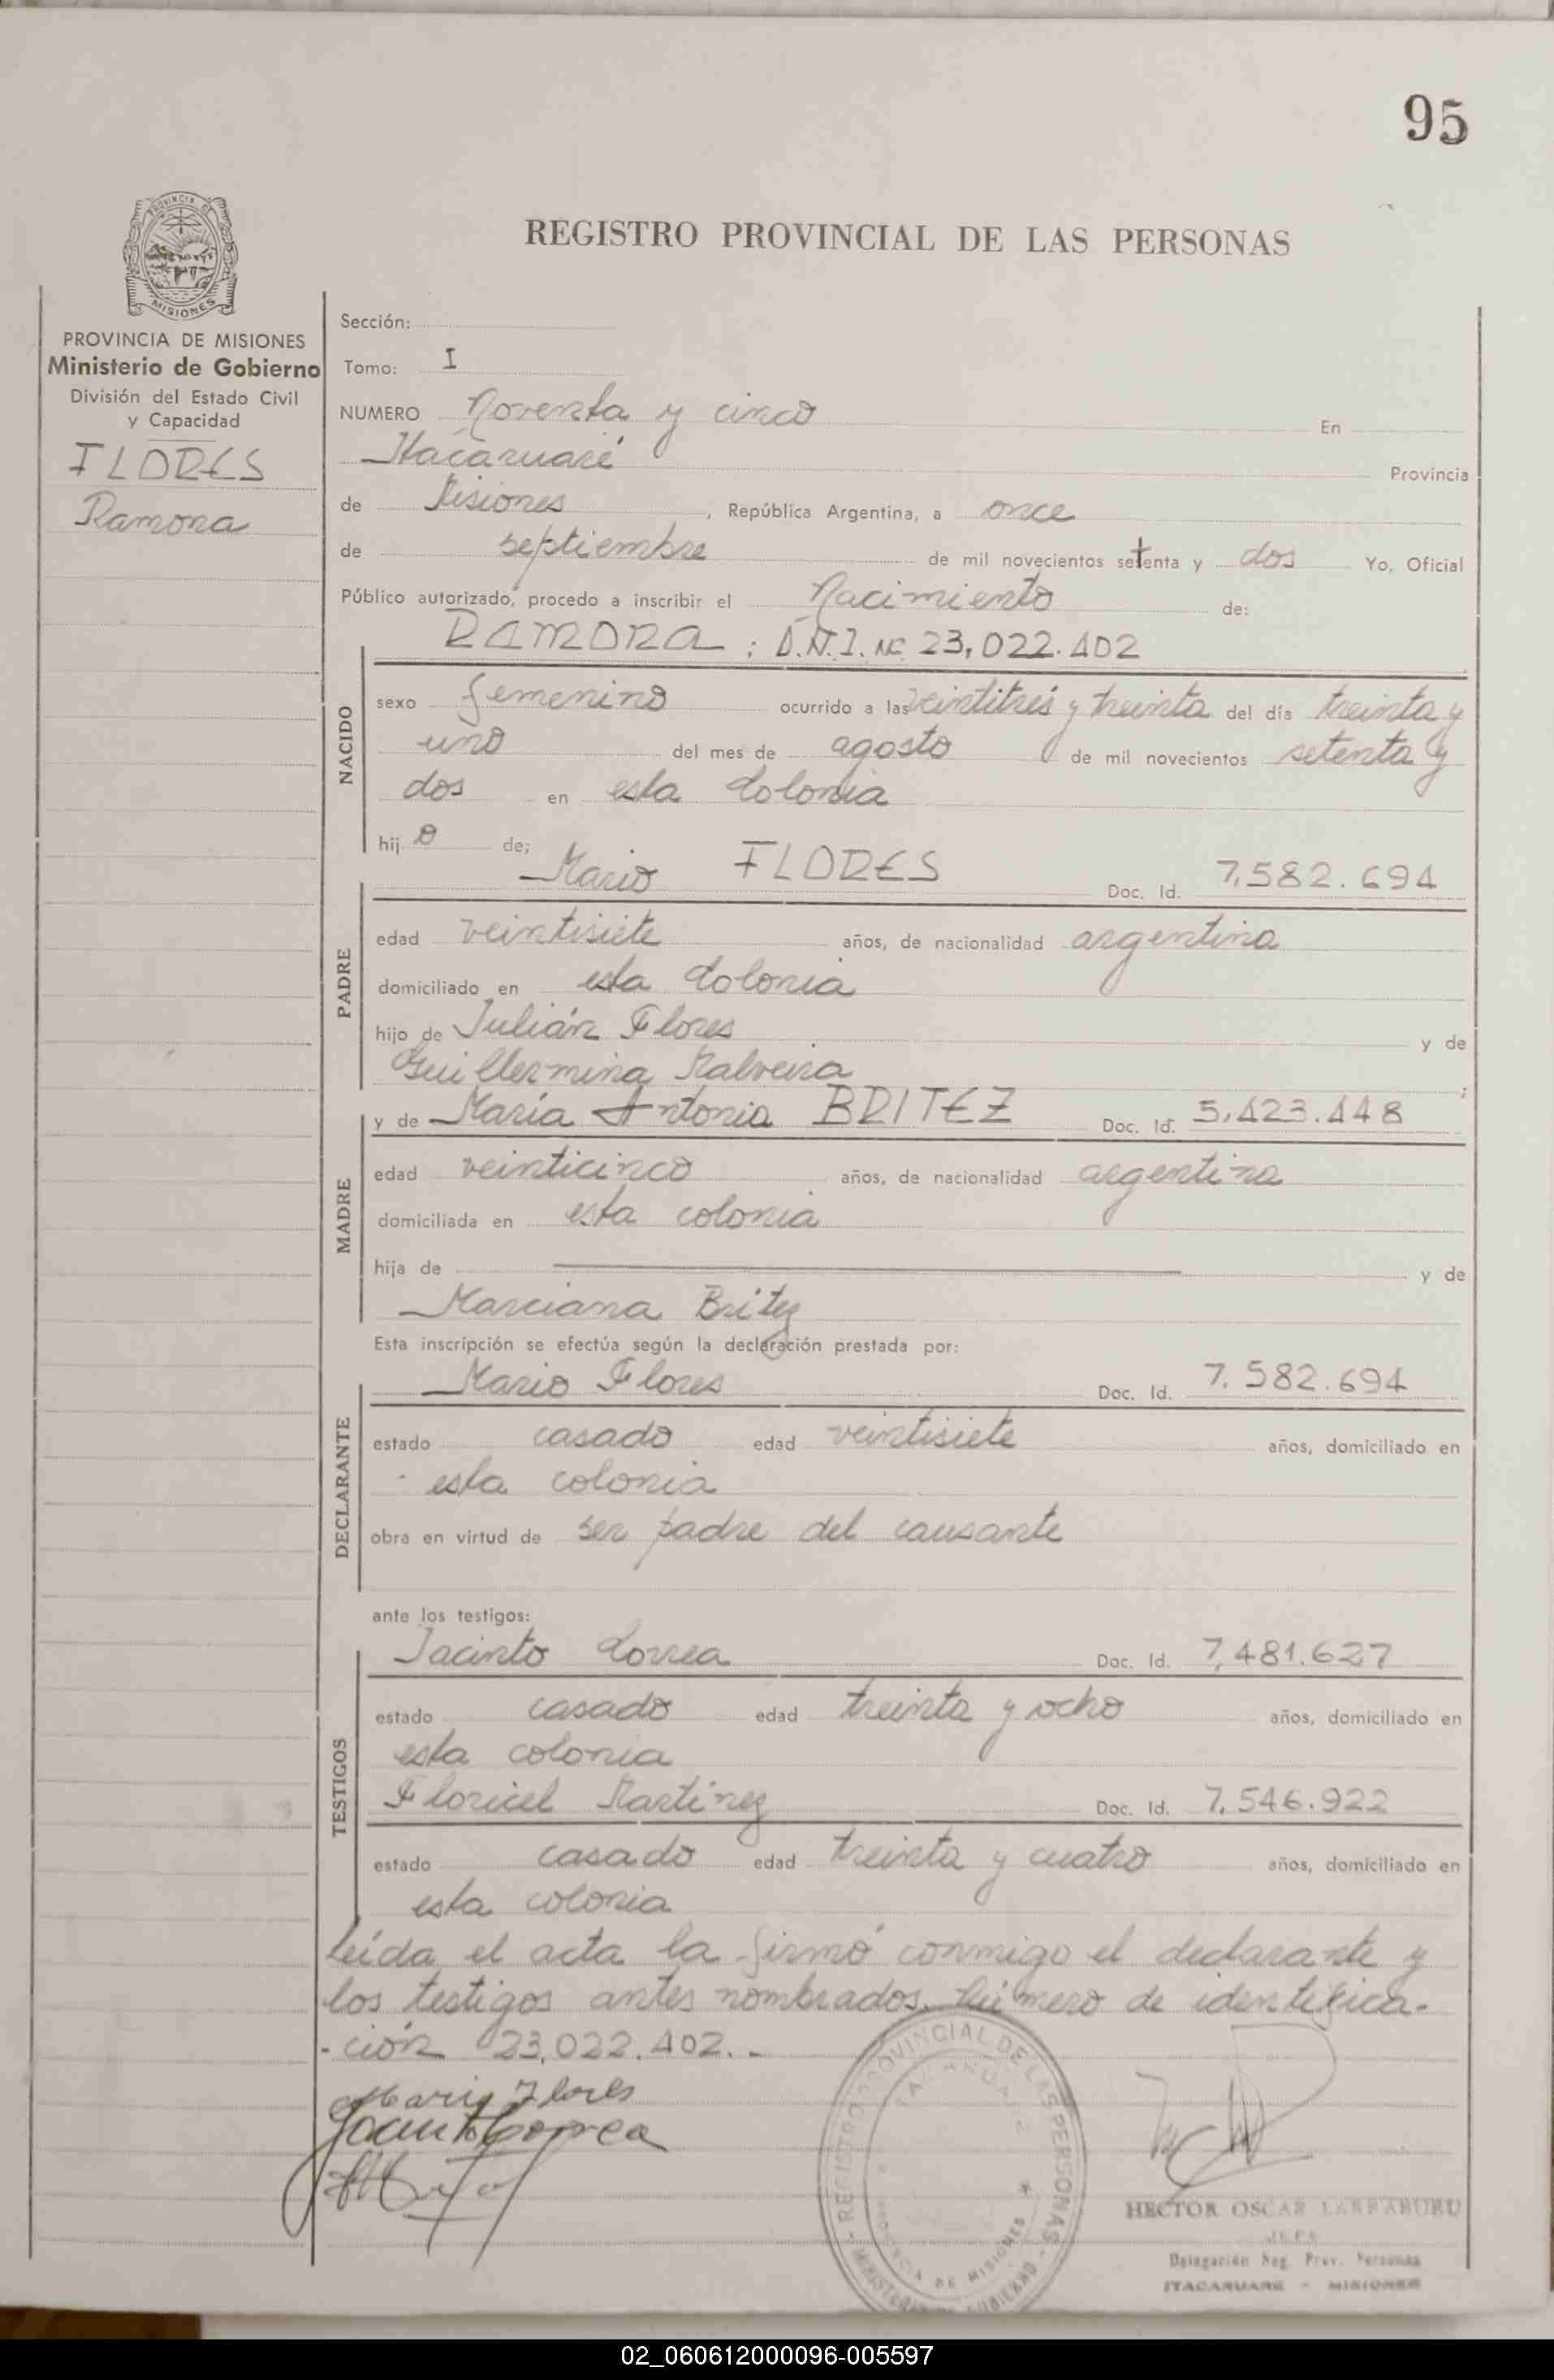 95
PROVINCIA DE MISIONES
REGISTRO PROVINCIAL DE LAS PERSONAS
PROVINCIA DE MISIONES
Ministerio de Gobierno
División del Estado Civil
y Capacidad
FLORES
Ramona
Sección:
Tomo: I
NUMERO Noventa y cinco En
Itacaruaré Provincia
de Misiones, República Argentina, a once
de septiembre de mil novecientos setenta y dos Yo, Oficial
Público autorizado, procedo a inscribir el Nacimiento de:
RAMONA : D.N.I. Nº 23,022.402
NACIDO
sexo femenino ocurrido a las veintitrés y treinta del día treinta y
uno del mes de agosto de mil novecientos setenta y
dos en esta Colonia
hij o de;
Mario FLORES Doc. Id. 7,582.694
PADRE
edad veintisiete años, de nacionalidad argentina
domiciliado en esta Colonia
hijo de Julián Flores y de
Guillermina Malveira;
y de María Antonia BRITEZ Doc. Id. 5,423.448
MADRE
edad veinticinco años, de nacionalidad argentina
domiciliada en esta colonia
hija de y de
Marciana Britez
Esta inscripción se efectúa según la declaración prestada por:
Mario Flores Doc. Id. 7.582.694
DECLARANTE
estado casado edad veintisiete años, domiciliado en
esta colonia
obra en virtud de ser padre del causante
ante los testigos:
Jacinto Correa Doc. Id. 7,481.627
TESTIGOS
estado casado edad treinta y ocho años, domiciliado en
esta colonia
Floricel Martínez Doc. Id. 7.546.922
estado casado edad treinta y cuatro años, domiciliado en
esta colonia
Leída el acta la firmó conmigo el declarante y
los testigos antes nombrados. Número de identifica-
-ción 23,022.402.-
Mario Flores
Jacinto Correa
REGISTRO PROVINCIAL DE LAS PERSONAS
ITACARUARE
PROVINCIA DE MISIONES
MINISTERIO DE GOBIERNO
HECTOR OSCAR LARRABURU
JEFE
Delegación Reg. Prov. Personas
ITACARUARE - MISIONES
02_060612000096-005597